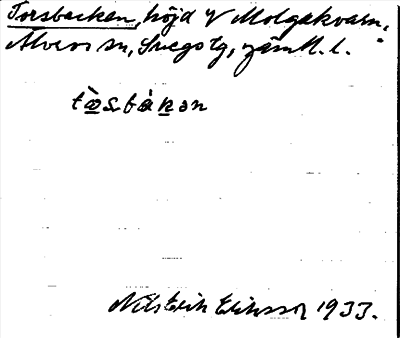 Torsbacken, höjd V Molgakvarn,
Älvros sn, Svegs tg, Jämtl. l.
tὰ̱sbàkən
Nils Erik Eriksson 1933.